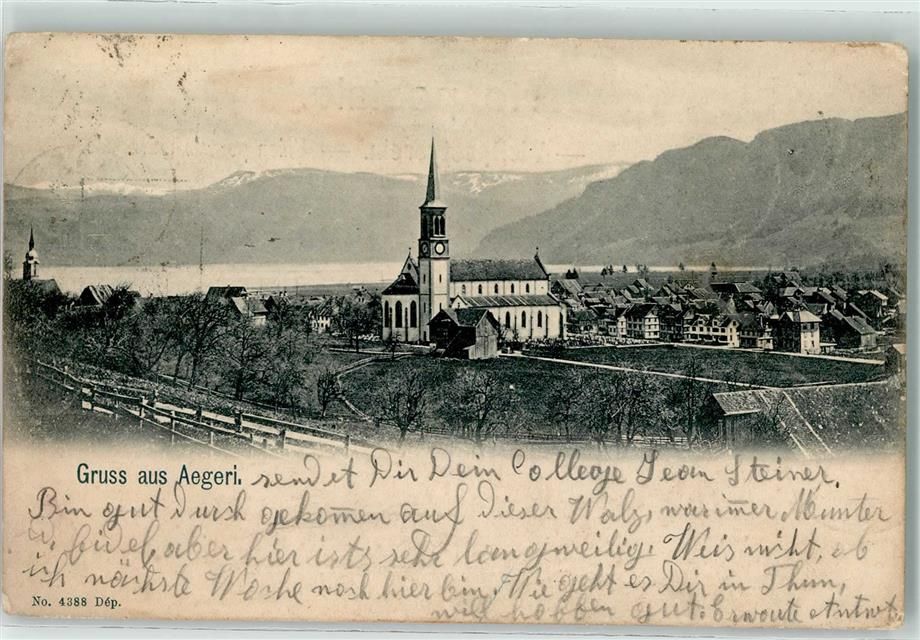 Gruss aus Aegeri. sendet Dir Dein College Jean Steiner.
Bin gut durch gekom̄en auf dieser Walz, war im̄er Munter
u. fidel, aber hier ists sehr langweilig. Weis nicht, ob
ich nächste Woche noch hier bin. Wie geht es Dir in Thun,
will hoffen gut. Erwarte Antwt.
No. 4388 Dép.